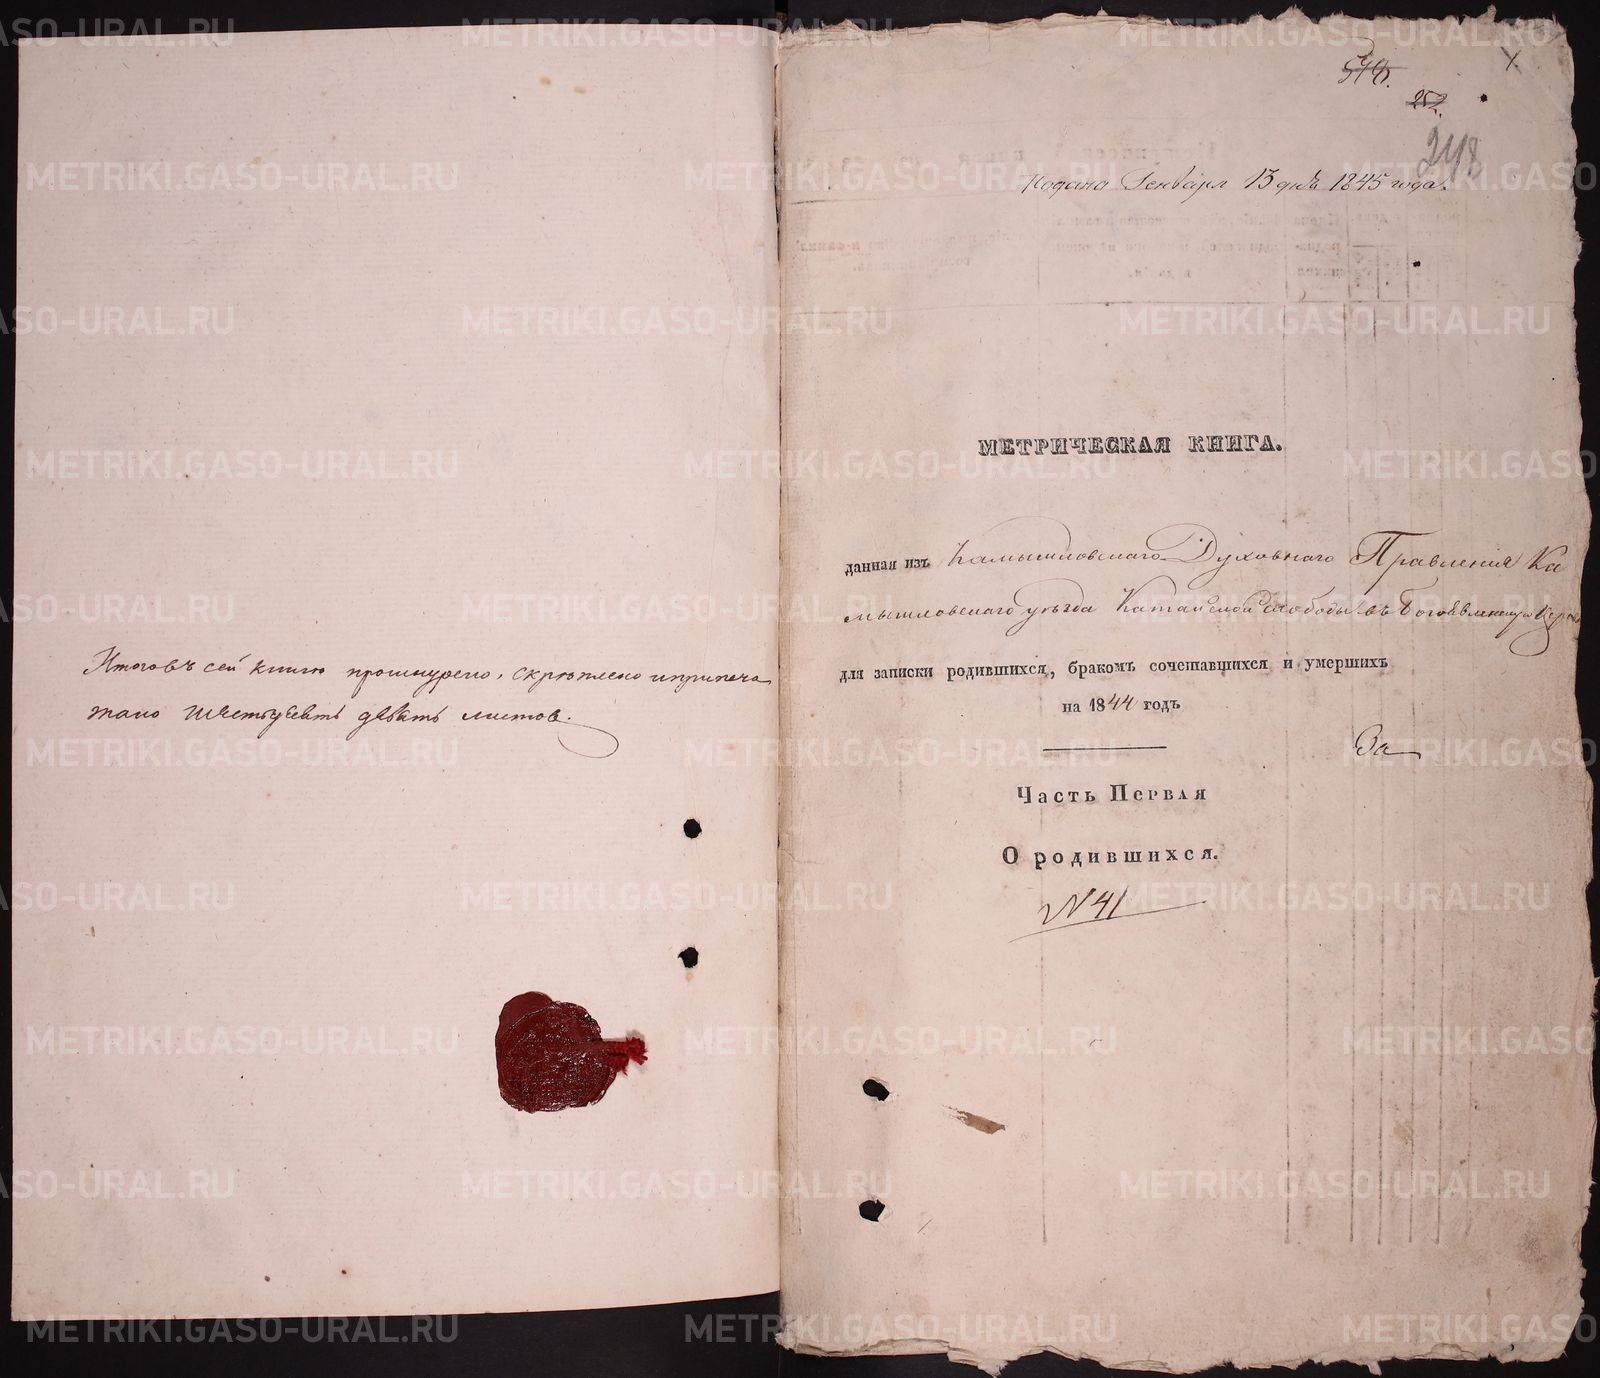 Итого въ сей книгѣ прошнурено, скрѣплено и припеча
тано шестьдесятъ девять листов.
248
Подано Генваря 13 дня 1845 года.
МЕТРИЧЕСКАЯ КНИГА.
данная изъ Камышловскаго Духовнаго Правленія Ка
мышловскаго уѣзда Катайской Слободы въ Богоявленскую Церковь
для записки родившихся, бракомъ сочетавшихся и умершихъ
на 1844 годъ
За
Часть Первая
О родившихся.
№ 41
METRIKI.GASO-URAL.RU